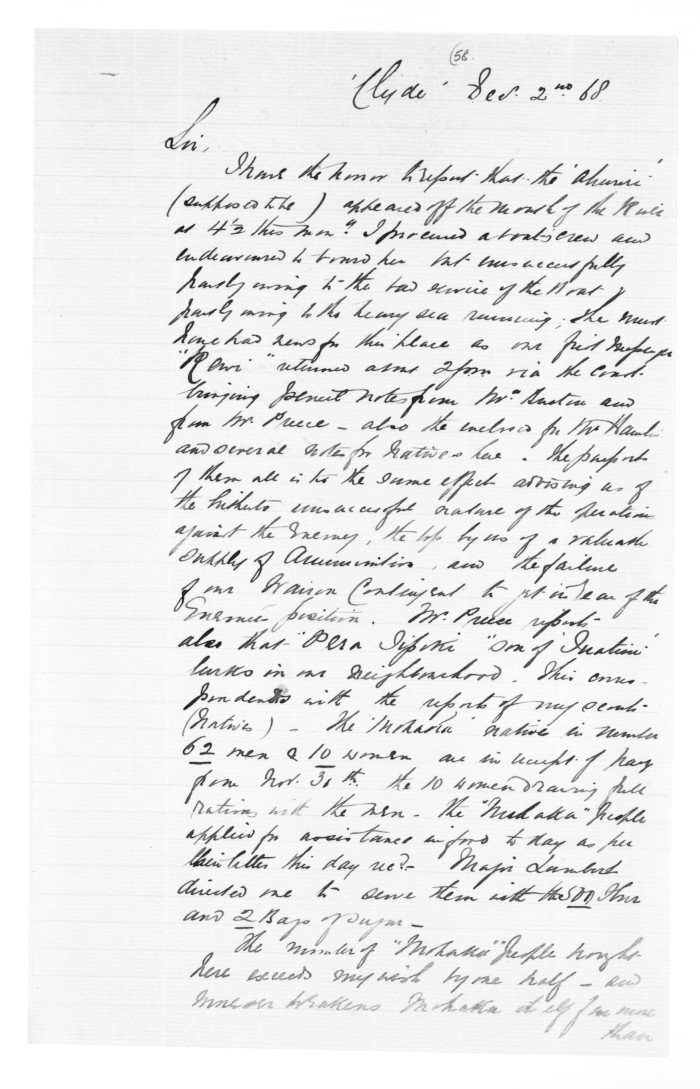 (58
'Clyde' Dec. 2nd 68
Sir,
I have the honor to report that the 'Ahuriri'
(supposed to be) appeared off the Mouth of the River
at 4½ this morng. I procured a boats crew and
endeavoured to board her but unsuccessfully
partly owing to the bad service of the Boat &
partly owing to the heavy sea running, She must
have had news fm this place as our first Messenger
"Rewi" returned abt 2 pm via the Coast
bringing pencil notes from Mr. and
from Mr Preece – also the enclosed for Mr Hamlin
and several notes for Natives here. The purport
of them all is to the same effect advising us of
the hitherto unsuccessful nature of the operations
against the Enemy, the loss by us of a valuable
supply of Ammunition, and the failure
of our Wairoa Contingent to get in rear of the
Enemies position. Mr. Preece reports
also that "Pera Tipoki" son of 'Inatini'
lurks in our neighbourhood. This corres-
pondends with the reports of my scouts
(Natives) – The 'Mohaka' natives in number
62 men & 10 women are in receipt of pay
from Nov. 30th. the 10 women drawing full
rations with the men – the "Mohaka" People
applied for assistance in food to day as per
their letter this day recd – Major Lambert
directed me to serve them with the 500 flour
and 2 Bags of Sugar –
The number of "Mohaka" People brought
here exceeds my wish by one half – and
moreover weakens Mohaka itself far more
than